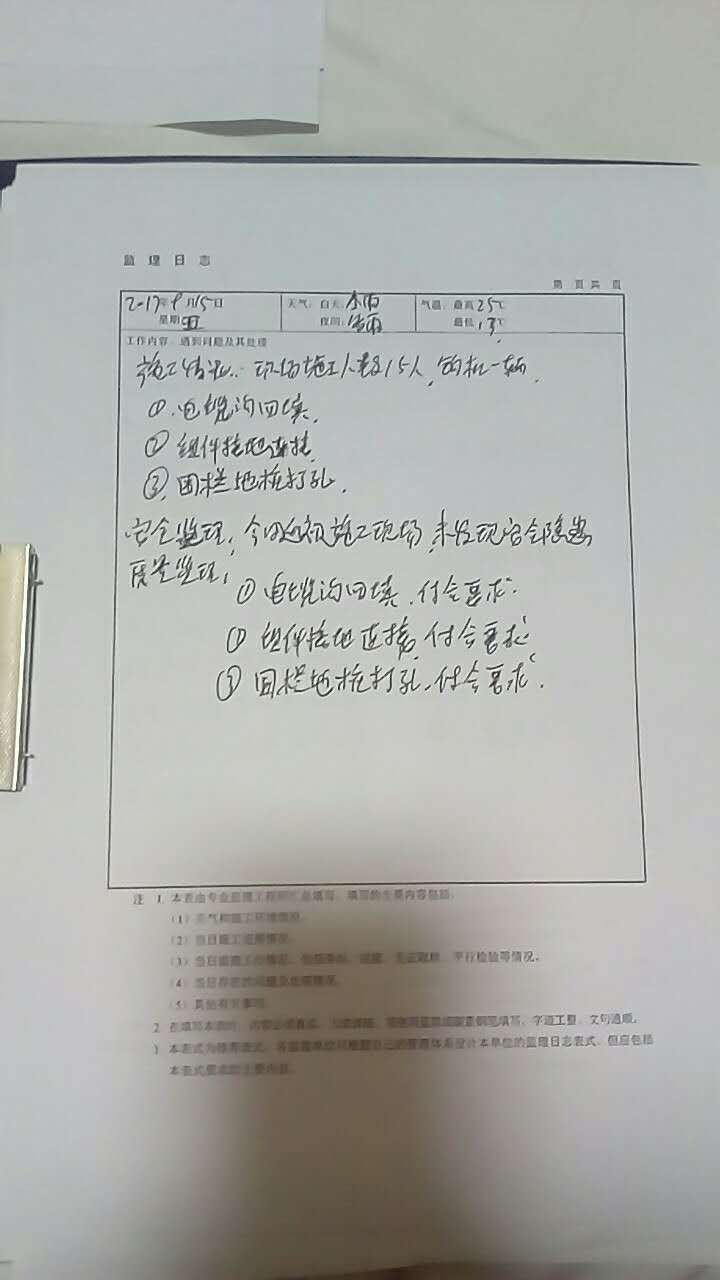 监理日志
第 页 共 页
2017年9月15日 天气：白天：小雨 气温：最高25℃
星期五 夜间：小雨 最低13℃
工作内容、遇到问题及其处理
施工情况：现场施工人数15人，钩机一辆，
①电缆沟回填，
②组件接地连接，
③围栏地桩打孔，
安全监理：今日巡视施工现场，未发现安全隐患
质量监理：
①电缆沟回填，付合要求
①组件接地连接，付合要求
③围栏地桩打孔，付合要求．
注 1 本表由专业监理工程师汇总填写，填写的主要内容包括：
（1）天气和施工环境情况。
（2）当日施工进展情况。
（3）当日监理工作情况，包括旁站、巡视、见证取样、平行检验等情况。
（4）当日存在的问题及处理情况。
（5）其他有关事项。
2 在填写本表时，内容必须真实，力求详细，字迹工整、文句通顺。
3 本表式为推荐表式，各监理单位可根据自己的管理体系设计本单位的监理日志表式，但应包括
本表式要求的主要内容。